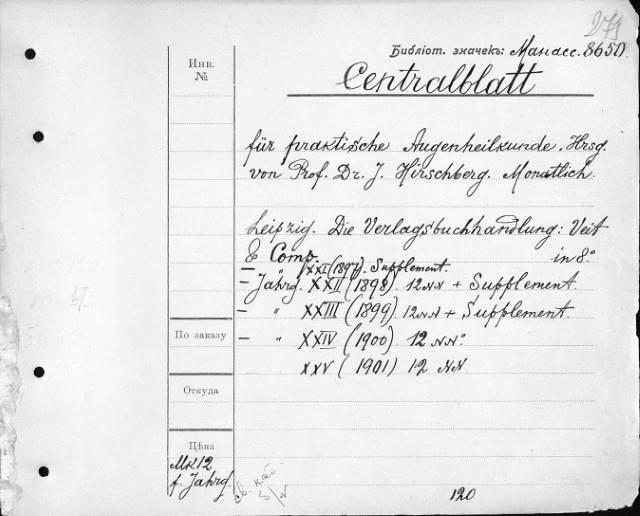 271
Библіот. значекъ: Манасс. 8650.
Инв.
№
Centralblatt
für praktische Augenheilkunde. Hrsg.
von Prof. Dr. J. Hirschberg. Monatlich.
Leipzig. Die Verlagsbuchhandlung: Veit
& Comp. in 8º
— " XXI (1897). Supplement.
— Jahrg. XXII (1898). 12 NN + Supplement.
— " XXIII (1899). 12 NN + Supplement.
По заказу
— " XXIV (1900). 12 NNº
XXV (1901) 12 NN
Откуда
Цѣна
Mk 12
f. Jahrg.
св. каб.
120